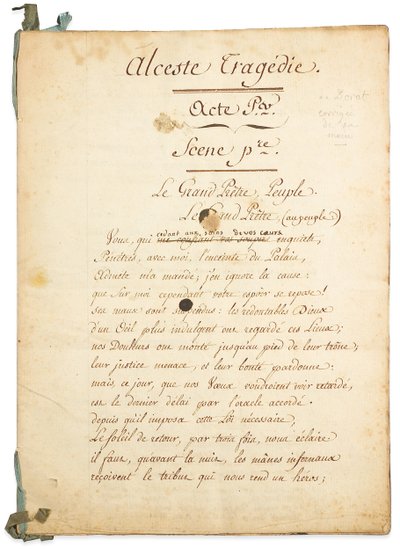 Alceste Tragédie.
Acte Per.
Scene pre.
de Dorat
corrigée
de sa
main
Le Grand Prêtre, Peuple.
Le Grand Prêtre (au peuple)
cedant aux soins de vos cœurs
Vous, qui me confiant vos inquiets,
Pénétrés, avec moi, l'enceinte du Palais,
Admete m'a mandé; j'en ignore la cause:
que sur moi cependant votre espoir se repose!
ses maux sont suspendus: les redoutables Dieux
d'un Œil plus indulgent ont regardé ces Lieux;
nos Douleurs ont monté jusqu'au pied de leur trône;
leur justice menace, et leur bonté pardonne:
mais ce jour, que nos Vœux voudroient voir retardé,
est le dernier délai par l'oracle accordé.
depuis qu'il imposa cette Loi nécessaire,
Le soleil de retour, par trois fois, nous éclaire
il faut, qu'avant la nuit, les mânes infernaux
reçoivent le tribut qui nous rend un héros;